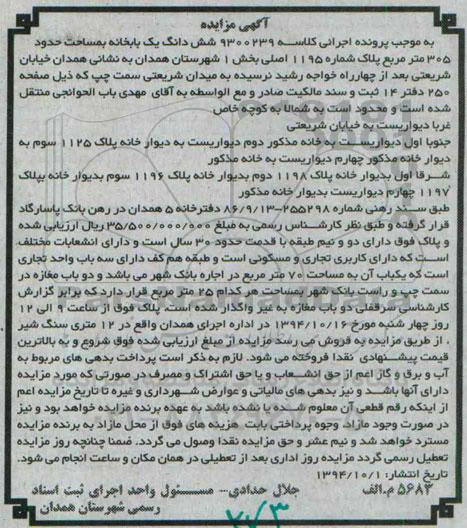 آگهی مزایده
به موجب پرونده اجرائی کلاسه ۹۳۰۰۲۳۹ شش دانگ یک بابخانه بمساحت حدود
۳۰۵ متر مربع پلاک شماره ۱۱۹۵ اصلی بخش ۱ شهرستان همدان به نشانی همدان خیابان
شریعتی بعد از چهارراه خواجه رشید نرسیده به میدان شریعتی سمت چپ که ذیل صفحه
۲۵۰ دفتر ۱۴ ثبت و سند مالکیت صادر و مع الواسطه به آقای مهدی باب الحوائجی منتقل
شده است و محدود است به شمالا به کوچه خاص
غربا دیواریست به خیابان شریعتی
جنوبا اول دیواریست به خانه مذکور دوم دیواریست به دیوار خانه پلاک ۱۱۲۵ سوم به
دیوار خانه مذکور چهارم دیواریست به خانه مذکور
شرقا اول بدیوار خانه پلاک ۱۱۹۸ دوم بدیوار خانه پلاک ۱۱۹۶ سوم بدیوار خانه بپلاک
۱۱۹۷ چهارم دیواریست بدیوار خانه مذکور
طبق سند رهنی شماره ۲۵۵۲۹۸-۸۶/۹/۱۳ دفترخانه ۵ همدان در رهن بانک پاسارگاد
قرار گرفته و طبق نظر کارشناس رسمی به مبلغ ۳۵/۵۰۰/۰۰۰/۰۰۰ ریال ارزیابی شده
و پلاک فوق دارای دو و نیم طبقه با قدمت حدود ۳۰ سال است و دارای انشعابات مختلف
است که دارای کاربری تجاری و مسکونی است و طبقه هم کف دارای سه باب واحد تجاری
است که یکباب آن به مساحت ۷۰ متر مربع در اجاره بانک شهر می باشد و دو باب مغازه در
سمت چپ و راست بانک شهر بمساحت هر کدام ۲۵ متر مربع قرار دارد که برابر گزارش
کارشناسی سرقفلی دو باب مغازه به غیر واگذار شده است. پلاک فوق از ساعت ۹ الی ۱۲
روز چهار شنبه مورخ ۱۳۹۴/۱۰/۱۶ در اداره اجرای همدان واقع در ۱۲ متری سنگ شیر
، از طریق مزایده به فروش می رسد مزایده از مبلغ ارزیابی شده فوق شروع و به بالاترین
قیمت پیشنهادی نقدا فروخته می شود. لازم به ذکر است پرداخت بدهی های مربوط به
آب و برق و گاز اعم از حق انشعاب و یا حق اشتراک و مصرف در صورتی که مورد مزایده
دارای آنها باشد و نیز بدهی های مالیاتی و عوارض شهرداری و غیره تا تاریخ مزایده اعم
از اینکه رقم قطعی آن معلوم شده یا نشده باشد به عهده برنده مزایده خواهد بود و نیز
در صورت وجود مازاد وجوه پرداختی بابت هزینه های فوق از محل مازاد به برنده مزایده
مسترد خواهد شد و نیم عشر و حق مزایده نقدا وصول می گردد. ضمنا چنانچه روز مزایده
تعطیل رسمی گردد مزایده روز اداری بعد از تعطیلی در همان مکان و ساعت انجام می شود.
تاریخ انتشار: ۱۳۹۴/۱۰/۱
۵۶۸۳ م.الف جلال حدادی- مسئول واحد اجرای ثبت اسناد
رسمی شهرستان همدان